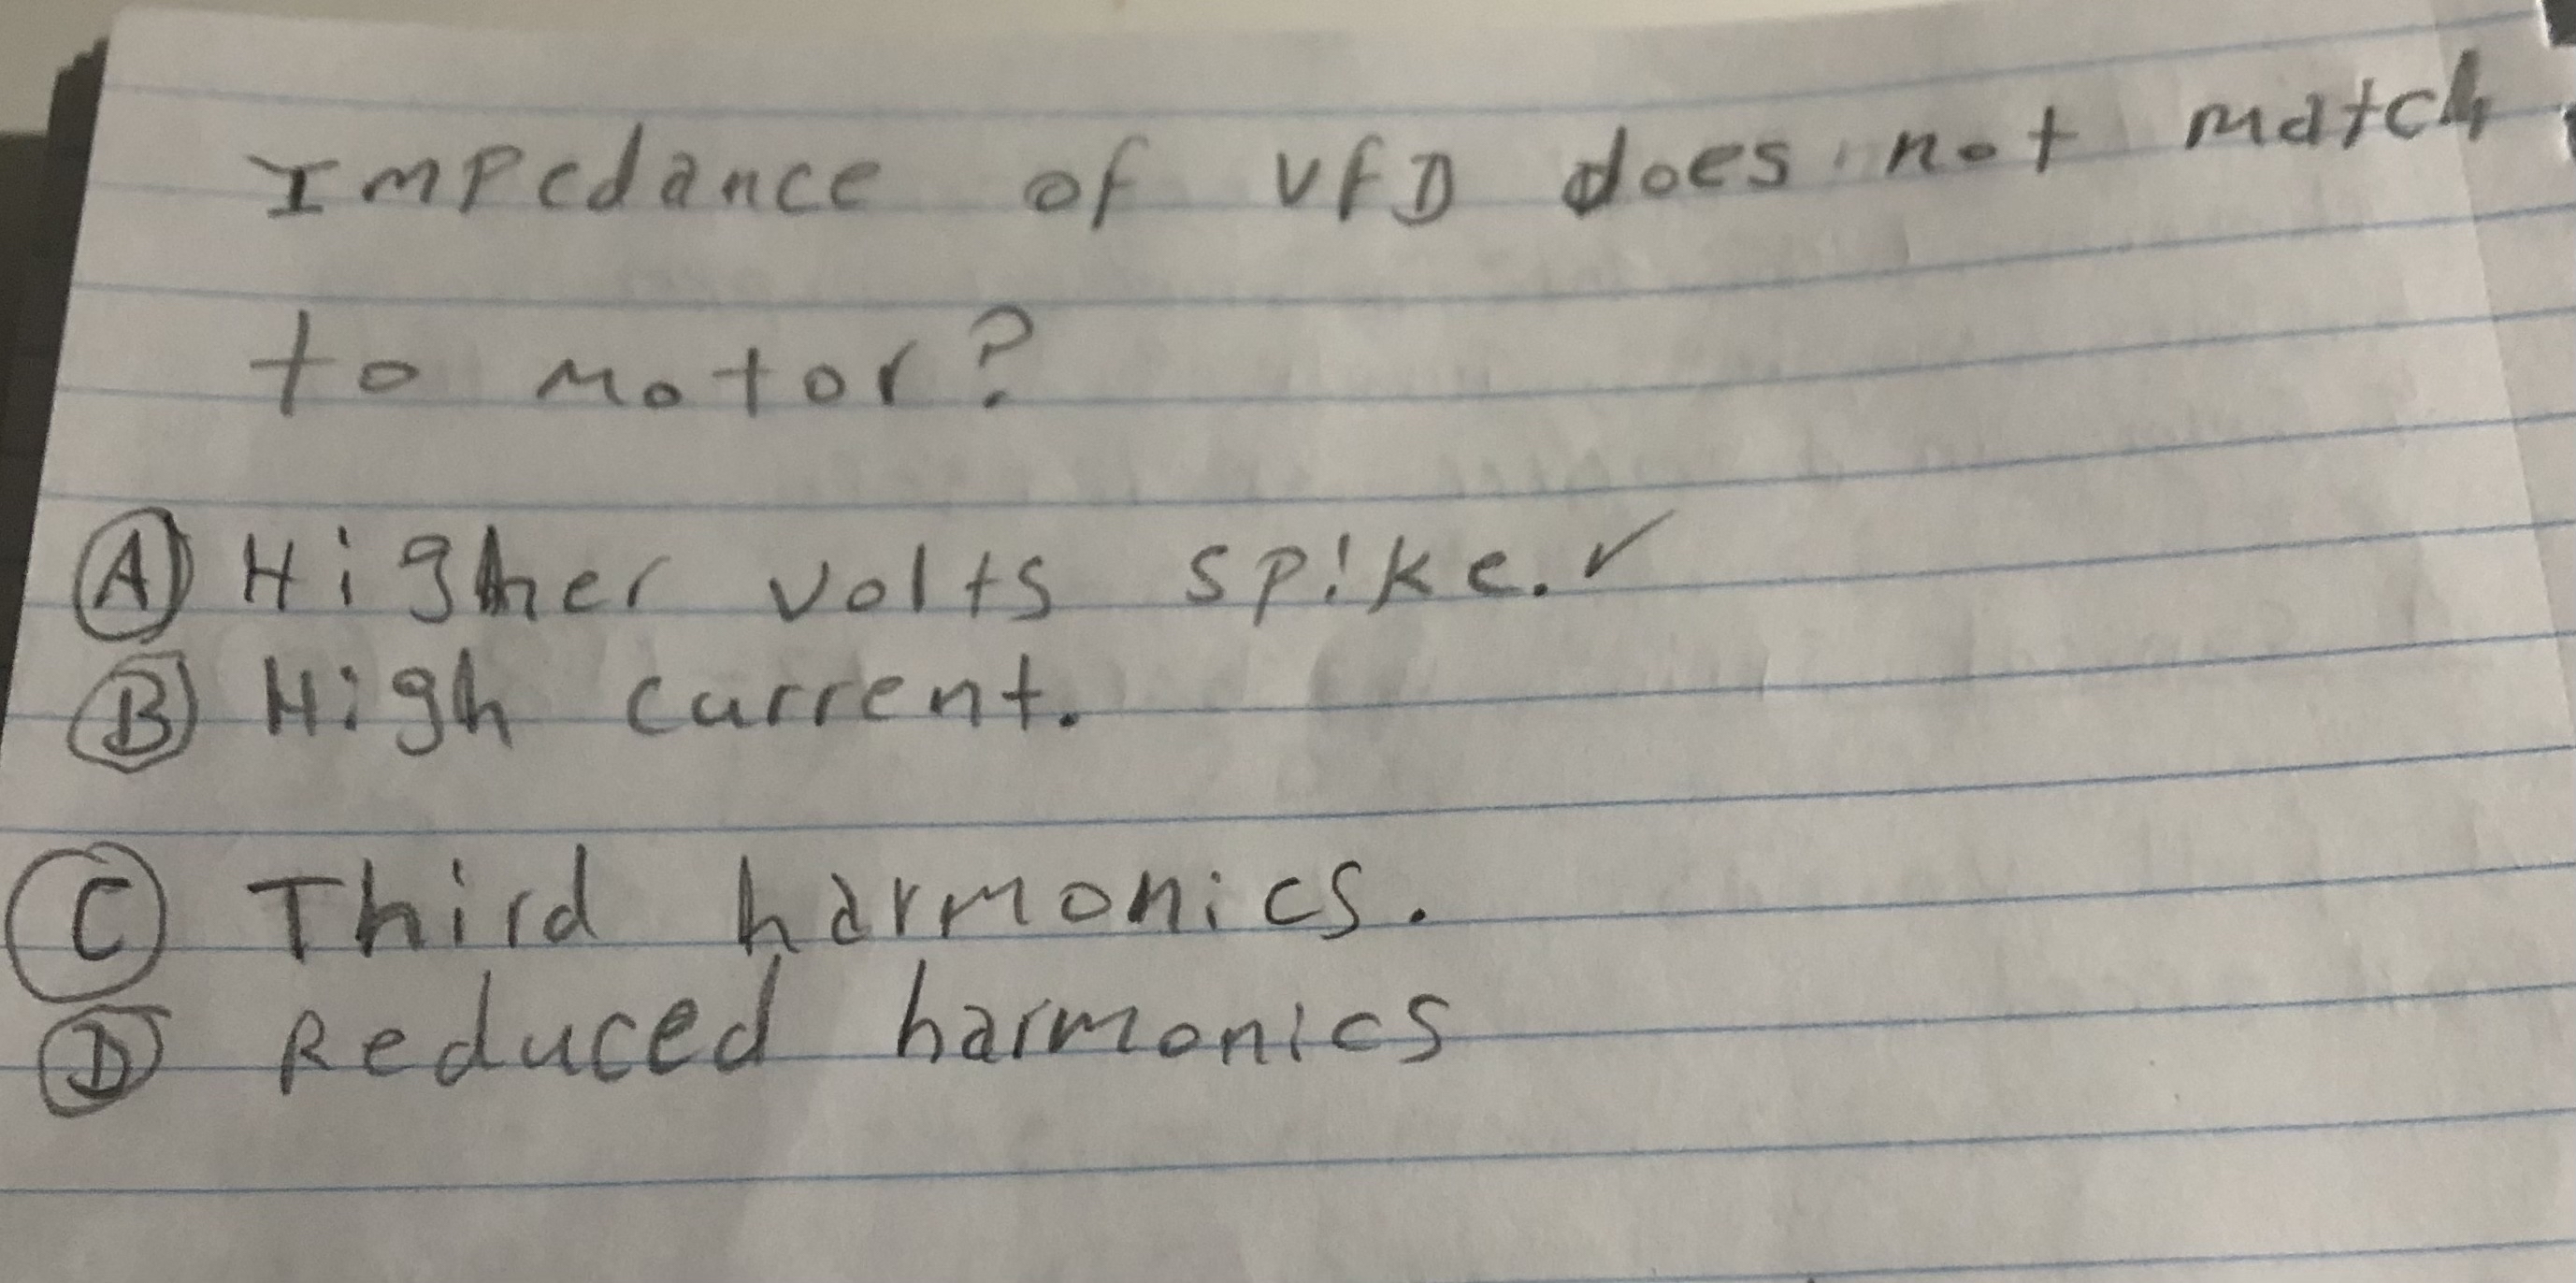 Impedance of VFD does not match
to motor?
A Higher volts spike. ✓
B High current.
C Third harmonics.
D Reduced harmonics